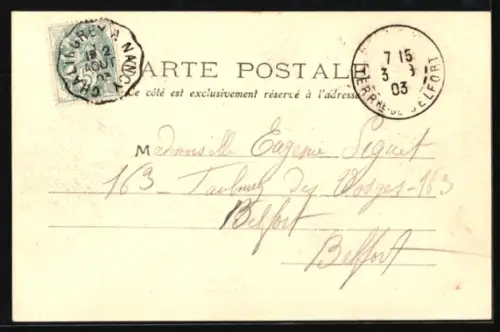 CHALINDREY A NANCY
2
AOUT
03
CARTE POSTALE
Ce côté est exclusivement réservé à l'adresse
7 15
3
03
TERRRE DE BELFORT
Mademoiselle Eugénie
163 - Faubourg des Vosges - 163
Belfort
Belfort